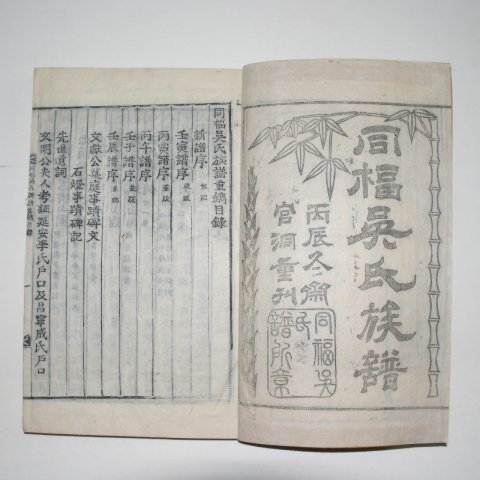 同福吳氏族譜
丙辰冬
官洞重刊
同福吳氏譜所章
同福吳氏族譜重鐫目錄
新譜序
壬寅譜序
丙寅譜序
丙午譜序
壬子譜序
壬辰譜序
文獻公墓庭事蹟碑文
石燈事蹟碑記
先世遺詞
文明公夫人考証延安李氏戶口及昌寧成氏戶口